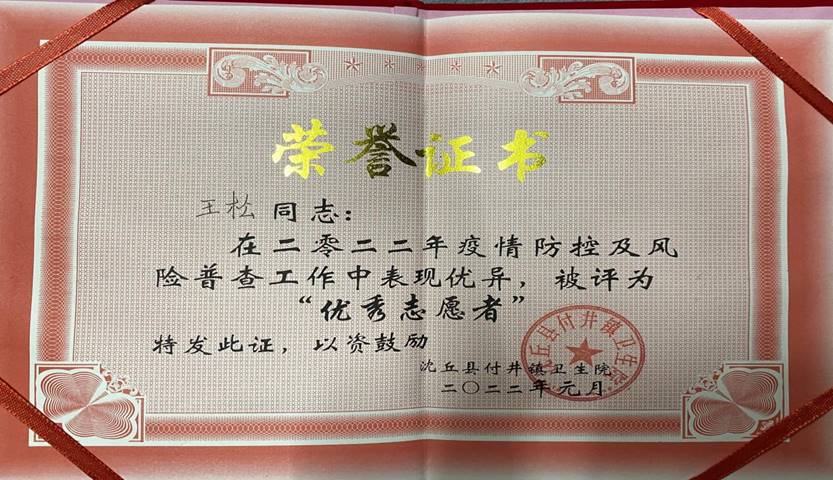 荣誉证书
王松 同志：
在二零二二年疫情防控及风
险普查工作中表现优异，被评为
“优秀志愿者”
特发此证，以资鼓励
沈丘县付井镇卫生院
二〇二二年元月
沈丘县付井镇卫生院